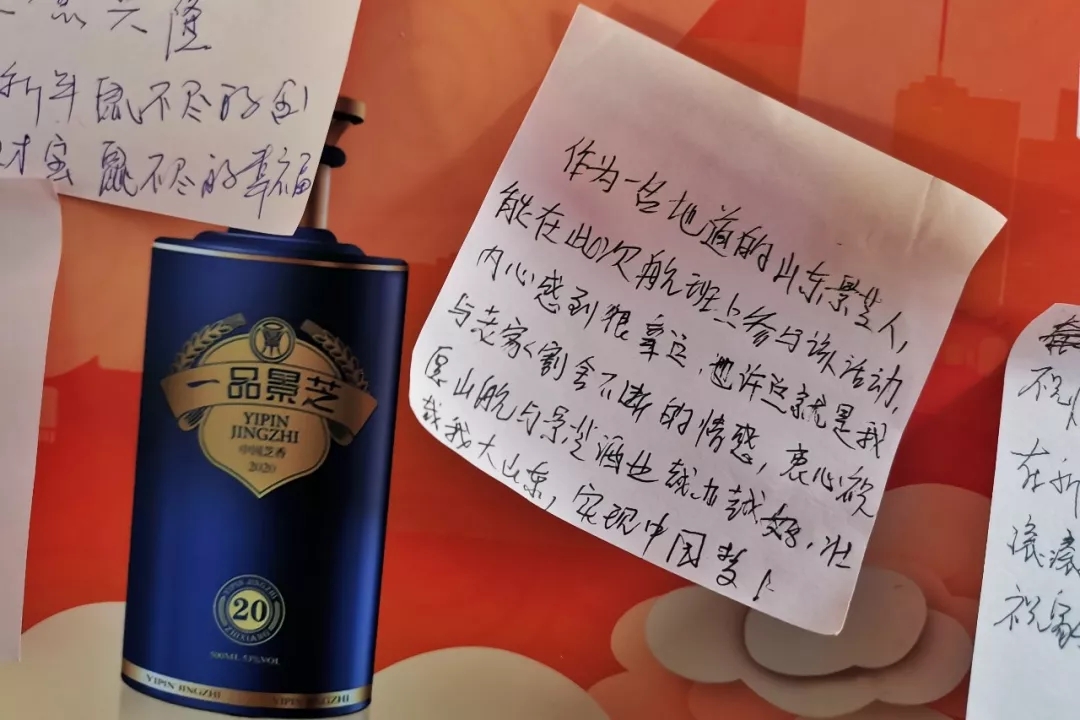 兴隆
新年 鼠不尽的金
财宝 鼠不尽的幸福
一品景芝
YIPIN
JINGZHI
中国芝香
2020
YIPIN JINGZHI
20
ZHIXIANG
500ML 53%VOL
YIPIN JINGZHI YIPIN JINGZHI
作为一名地道的山东景芝人,
能在此次航班上参与该活动,
内心感到狠幸运,也许这就是我
与老家割舍不断的情感,衷心祝
愿山航与景芝酒业越办越好,壮
哉我大山东,实现中国梦!
祝
在新
滚滚
祝家